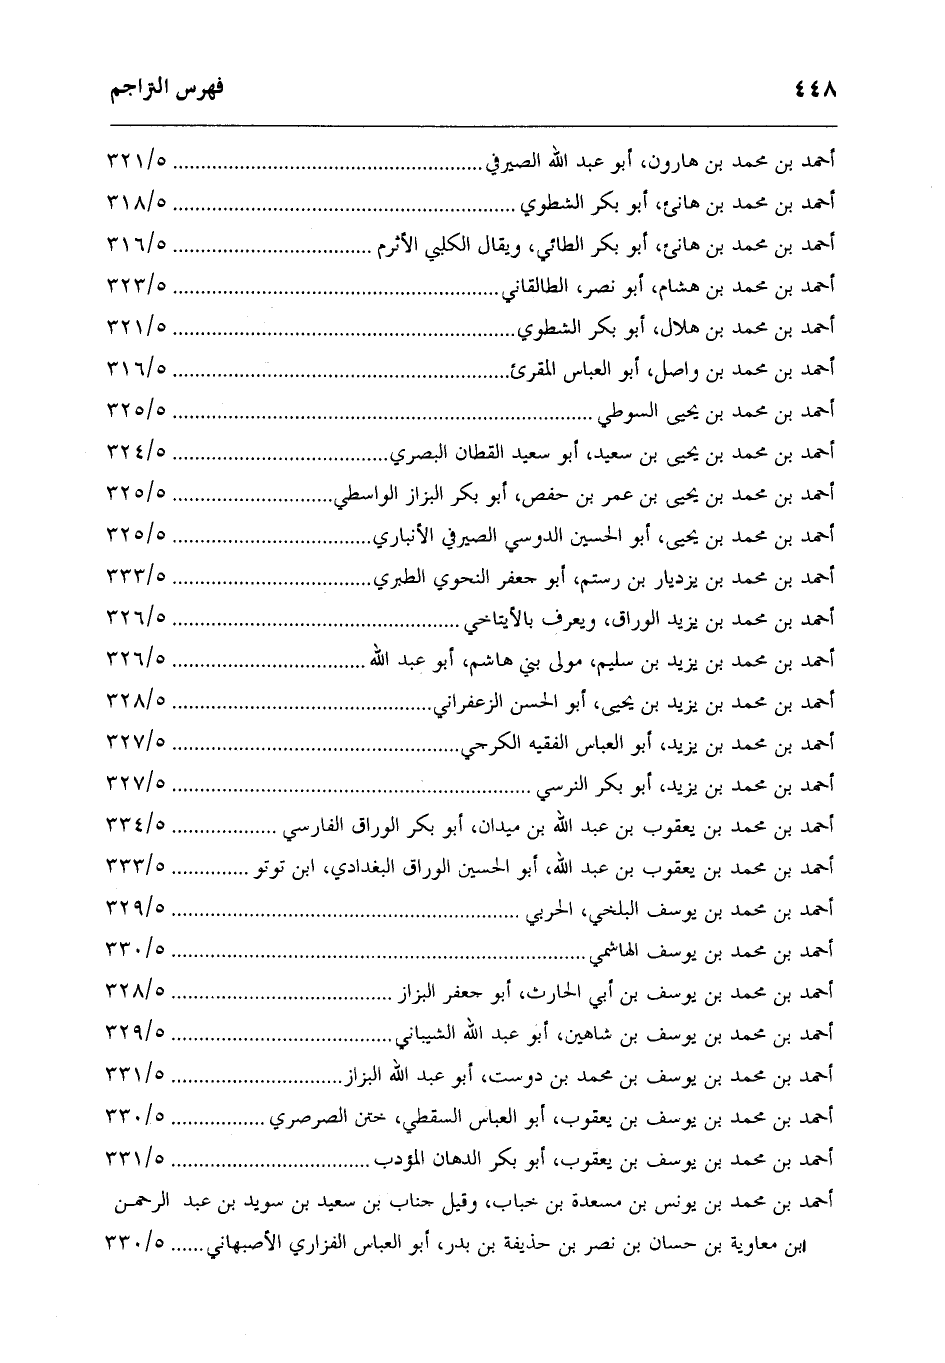 ٤٤٨ فهرس التراجم
أحمد بن محمد بن هارون، أبو عبد الله الصيرفي ..... ٣٢١/٥
أحمد بن محمد بن هانئ، أبو بكر الشطوي ..... ٣١٨/٥
أحمد بن محمد بن هانئ، أبو بكر الطائي، ويقال الكلبي الأثرم ..... ٣١٦/٥
أحمد بن محمد بن هشام، أبو نصر، الطالقاني ..... ٣٢٣/٥
أحمد بن محمد بن هلال، أبو بكر الشطوي ..... ٣٢١/٥
أحمد بن محمد بن واصل، أبو العباس المقرئ ..... ٣١٦/٥
أحمد بن محمد بن يحيى السوطي ..... ٣٢٥/٥
أحمد بن محمد بن يحيى بن سعيد، أبو سعيد القطان البصري ..... ٣٢٤/٥
أحمد بن محمد بن يحيى بن عمر بن حفص، أبو بكر البزاز الواسطي ..... ٣٢٥/٥
أحمد بن محمد بن يحيى، أبو الحسين الدوسي الصيرفي الأنباري ..... ٣٢٥/٥
أحمد بن محمد بن يزديار بن رستم، أبو جعفر النحوي الطبري ..... ٣٣٣/٥
أحمد بن محمد بن يزيد الوراق، ويعرف بالأيتاخي ..... ٣٢٦/٥
أحمد بن محمد بن يزيد بن سليم، مولى بني هاشم، أبو عبد الله ..... ٣٢٦/٥
أحمد بن محمد بن يزيد بن يحيى، أبو الحسن الزعفراني ..... ٣٢٨/٥
أحمد بن محمد بن يزيد، أبو العباس الفقيه الكرجي ..... ٣٢٧/٥
أحمد بن محمد بن يزيد، أبو بكر النرسي ..... ٣٢٧/٥
أحمد بن محمد بن يعقوب بن عبد الله بن ميدان، أبو بكر الوراق الفارسي ..... ٣٣٤/٥
أحمد بن محمد بن يعقوب بن عبد الله، أبو الحسين الوراق البغدادي، ابن توتو ..... ٣٣٣/٥
أحمد بن محمد بن يوسف البلخي، الحربي ..... ٣٢٩/٥
أحمد بن محمد بن يوسف الهاشمي ..... ٣٣٠/٥
أحمد بن محمد بن يوسف بن أبي الحارث، أبو جعفر البزاز ..... ٣٢٨/٥
أحمد بن محمد بن يوسف بن شاهين، أبو عبد الله الشيباني ..... ٣٢٩/٥
أحمد بن محمد بن يوسف بن محمد بن دوست، أبو عبد الله البزاز ..... ٣٣١/٥
أحمد بن محمد بن يوسف بن يعقوب، أبو العباس السقطي، ختن الصرصري ..... ٣٣٠/٥
أحمد بن محمد بن يوسف بن يعقوب، أبو بكر الدهان المؤدب ..... ٣٣١/٥
أحمد بن محمد بن يونس بن مسعدة بن خباب، وقيل حناب بن سعيد بن سويد بن عبد الرحمن
ابن معاوية بن حسان بن نصر بن حذيفة بن بدر، أبو العباس الفزاري الأصبهاني ..... ٣٣٠/٥